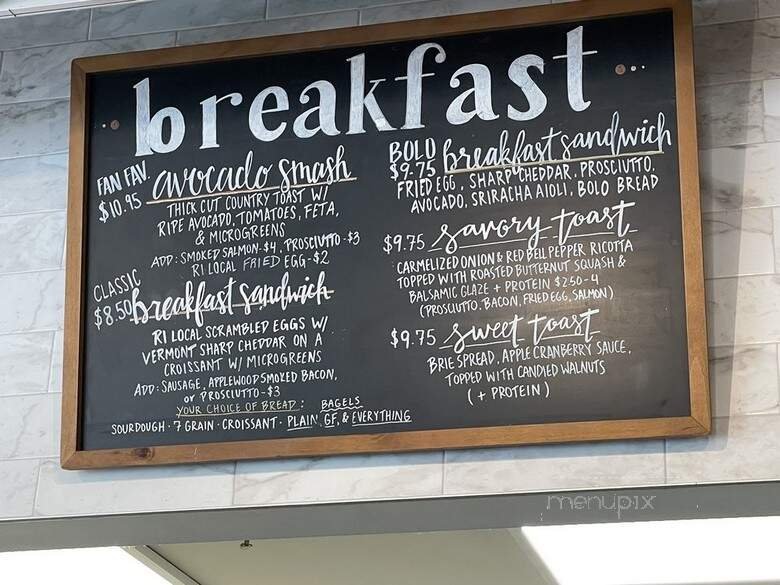 breakfast
FAN FAV. avocado smash
$10.95
THICK CUT COUNTRY TOAST W/
RIPE AVOCADO, TOMATOES, FETA,
& MICROGREENS
ADD: SMOKED SALMON-$4, PROSCIUTTO-$3
RI LOCAL FRIED EGG-$2
CLASSIC
$8.50 breakfast sandwich
RI LOCAL SCRAMBLED EGGS W/
VERMONT SHARP CHEDDAR ON A
CROISSANT W/ MICROGREENS
ADD: SAUSAGE, APPLEWOOD SMOKED BACON,
or PROSCIUTTO-$3
YOUR CHOICE OF BREAD: BAGELS
SOURDOUGH · 7 GRAIN · CROISSANT · PLAIN, GF, & EVERYTHING
BOLO
$9.75 breakfast sandwich
FRIED EGG, SHARP CHEDDAR, PROSCIUTTO,
AVOCADO, SRIRACHA AIOLI, BOLO BREAD
$9.75 savory toast
CARMELIZED ONION & RED BELL PEPPER RICOTTA
TOPPED WITH ROASTED BUTTERNUT SQUASH &
BALSAMIC GLAZE + PROTEIN $2.50-4
(PROSCIUTTO, BACON, FRIED EGG, SALMON)
$9.75 sweet toast
BRIE SPREAD, APPLE CRANBERRY SAUCE,
TOPPED WITH CANDIED WALNUTS
(+ PROTEIN)
menupix